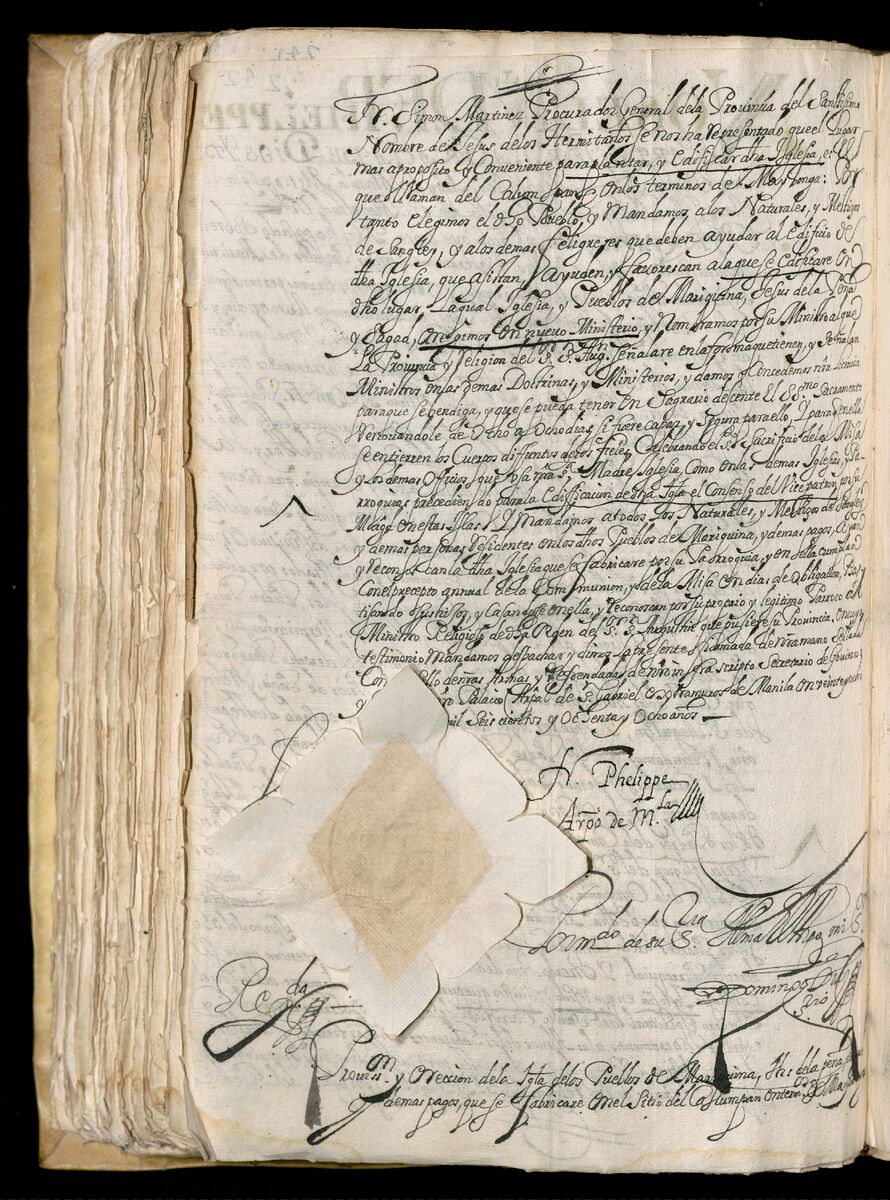 Fr. Simon Martinez Procurador General dela Provinçia del Santissimo
Nombre de Jesus delos Hermitaños se nos ha representado que el Lugar
mas aproposito y Conveniente para plantar, y Edificar dha Iglesia, es El
que llaman del Calumpang en los terminos de
tanto elegimos el dho Pueblo, y Mandamos alos Naturales, y Mestizos
de Sangley, y alos demas feligreses que deben ayudar al Edificio de
dha Iglesia, que asistan, ayuden, y favorescan ala que se Edificare En
dho lugar, Laqual Iglesia, y Pueblos de Mariquina, Jesus dela Peña
y Pagad, erigimos en nuevo Ministerio, y Nombramos por su Ministro al que
la Provinçia y Religion del S. S. Aug.n señalare en la forma que tienen, y señalan
Ministros en las demas Doctrinas, y Ministerios, y damos y Concedemos nrã Licencia
para que se bendiga, y que se pueda tener En Sagrario decente El SS.mo Sacramento
renovandole de Ocho a Ocho dias, si fuere capaz, y segura para ello, y para que en ella
se entierren los Cuerpos difuntos delos fieles, Celebrando el S.to Sacrificio dela Misa
y los demas Officios, que usa nra S. Madre Iglesia, como en las demas Iglesias, y Pa
rroquias precediendo para la Edificacion de dha Igla el Consenso del Vice patron, por su
Mag.d en estas Islas. Y Mandamos atodos los Naturales, y Mestizos de Sangley
y demas personas residentes en los dhos Pueblos de Mariquina, y demas pagos, ayan
y reconoscan la dha Iglesia que se fabricare por su Parroquia, y en della cumplan
Con el precepto annual dela Communion, y dela Misa en dias de Obligacion, Bap
tisando sus hijos, y Casandose en ella, y reconoscan por su proprio y legitimo Parroco al
Ministro Religioso de dha Orden del S. S. Augustin que pusiere su Provinçia, en cuyo
testimonio Mandamos despachar y dimos la presente firmada de nra mano sellada
Con sello de nras Armas y refrendada de nro infra scripto Secretario de
Palacio Arçpal de S. Gabriel extramuros de Manila en veinte y
mil Seis cientos y Ochenta y Ocho años
Fr. Phelippe
Arçpo de M.la
Por m.do de su S.ria Illma el Arçpo mi S.or
Domingo
Srio
R.da
Provis.on y ereccion dela Igla delos Pueblos de Mariquina, Jhs dela peña
y demas pagos, que se fabricare en el Sitio del Calumpan